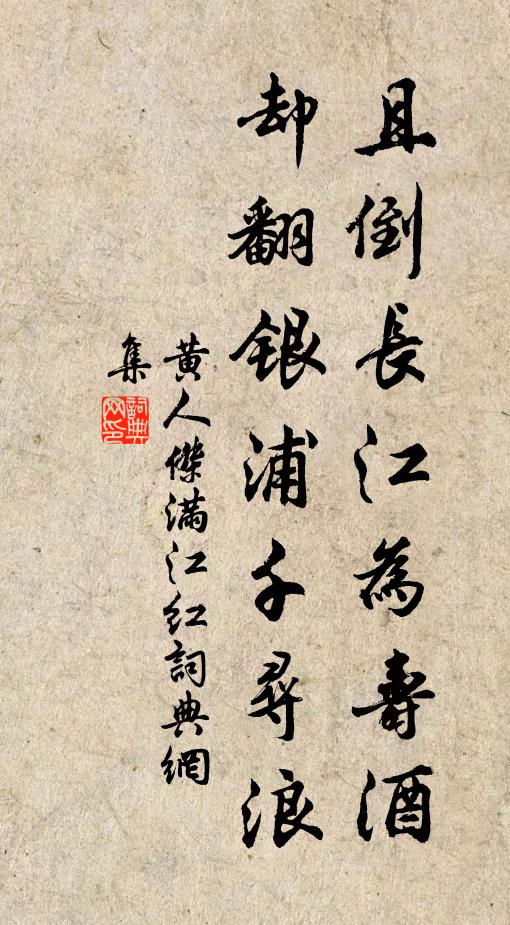 且倒長江為壽酒
却翻銀浦千尋浪
黄人傑滿江紅詞典網
集
詞典
网印